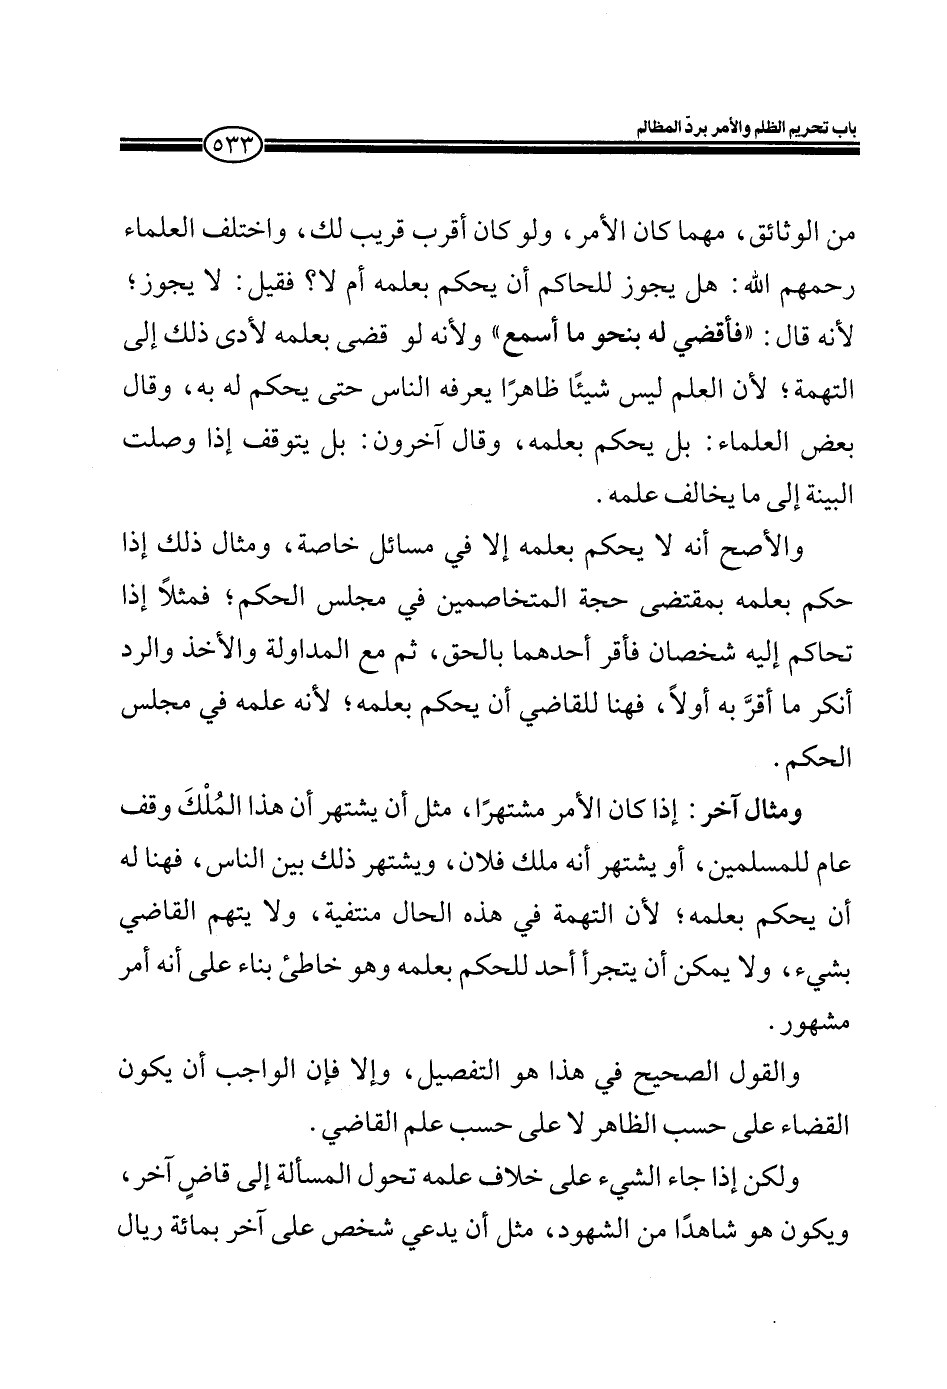 باب تحريم الظلم والأمر بردّ المظالم
٥٣٣
من الوثائق، مهما كان الأمر، ولو كان أقرب قريب لك، واختلف العلماء
رحمهم الله: هل يجوز للحاكم أن يحكم بعلمه أم لا؟ فقيل: لا يجوز؛
لأنه قال: «فأقضي له بنحو ما أسمع» ولأنه لو قضى بعلمه لأدى ذلك إلى
التهمة؛ لأن العلم ليس شيئًا ظاهرًا يعرفه الناس حتى يحكم له به، وقال
بعض العلماء: بل يحكم بعلمه، وقال آخرون: بل يتوقف إذا وصلت
البينة إلى ما يخالف علمه.
والأصح أنه لا يحكم بعلمه إلا في مسائل خاصة، ومثال ذلك إذا
حكم بعلمه بمقتضى حجة المتخاصمين في مجلس الحكم؛ فمثلاً إذا
تحاكم إليه شخصان فأقر أحدهما بالحق، ثم مع المداولة والأخذ والرد
أنكر ما أقرَّ به أولاً، فهنا للقاضي أن يحكم بعلمه؛ لأنه علمه في مجلس
الحكم.
ومثال آخر: إذا كان الأمر مشتهرًا، مثل أن يشتهر أن هذا المُلْكَ وقف
عام للمسلمين، أو يشتهر أنه ملك فلان، ويشتهر ذلك بين الناس، فهنا له
أن يحكم بعلمه؛ لأن التهمة في هذه الحال منتفية، ولا يتهم القاضي
بشيء، ولا يمكن أن يتجرأ أحد للحكم بعلمه وهو خاطئ بناء على أنه أمر
مشهور.
والقول الصحيح في هذا هو التفصيل، وإلا فإن الواجب أن يكون
القضاء على حسب الظاهر لا على حسب علم القاضي.
ولكن إذا جاء الشيء على خلاف علمه تحول المسألة إلى قاضٍ آخر،
ويكون هو شاهدًا من الشهود، مثل أن يدعي شخص على آخر بمائة ريال